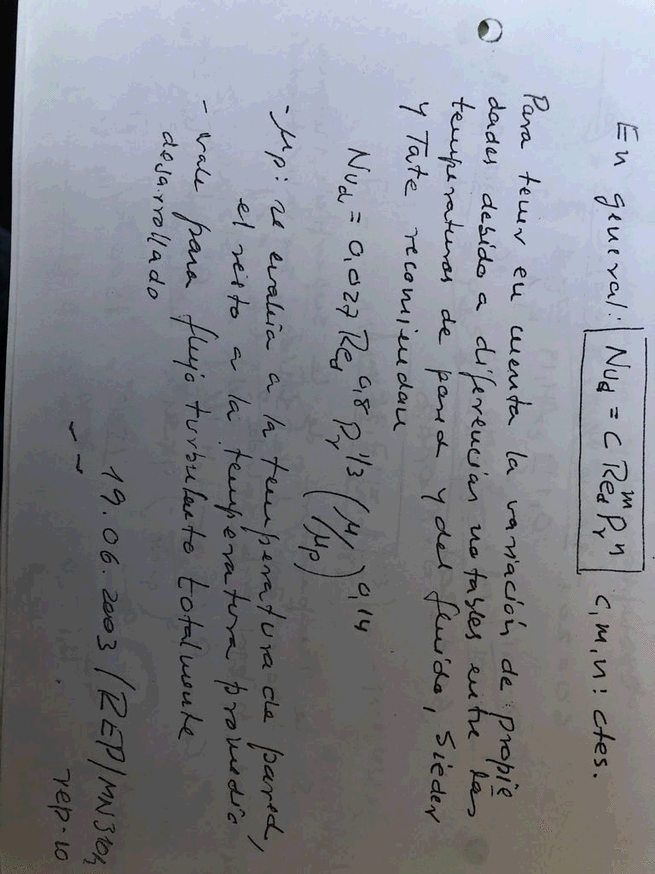 En general: Nud = C Red^m Pr^n  c, m, n: ctes.
Para tener en cuenta la variación de propie
dades debido a diferencias notables entre las
temperaturas de pared y del fluido, Sieder
y Tate recomiendan
Nud = 0,027 Red^0,8 Pr^1/3 (μ/μp)^0,14
- μp: se evalúa a la temperatura de pared,
el resto a la temperatura promedio
- vale para flujo turbulento totalmente
desarrollado
19.06.2003 / REP/MN310